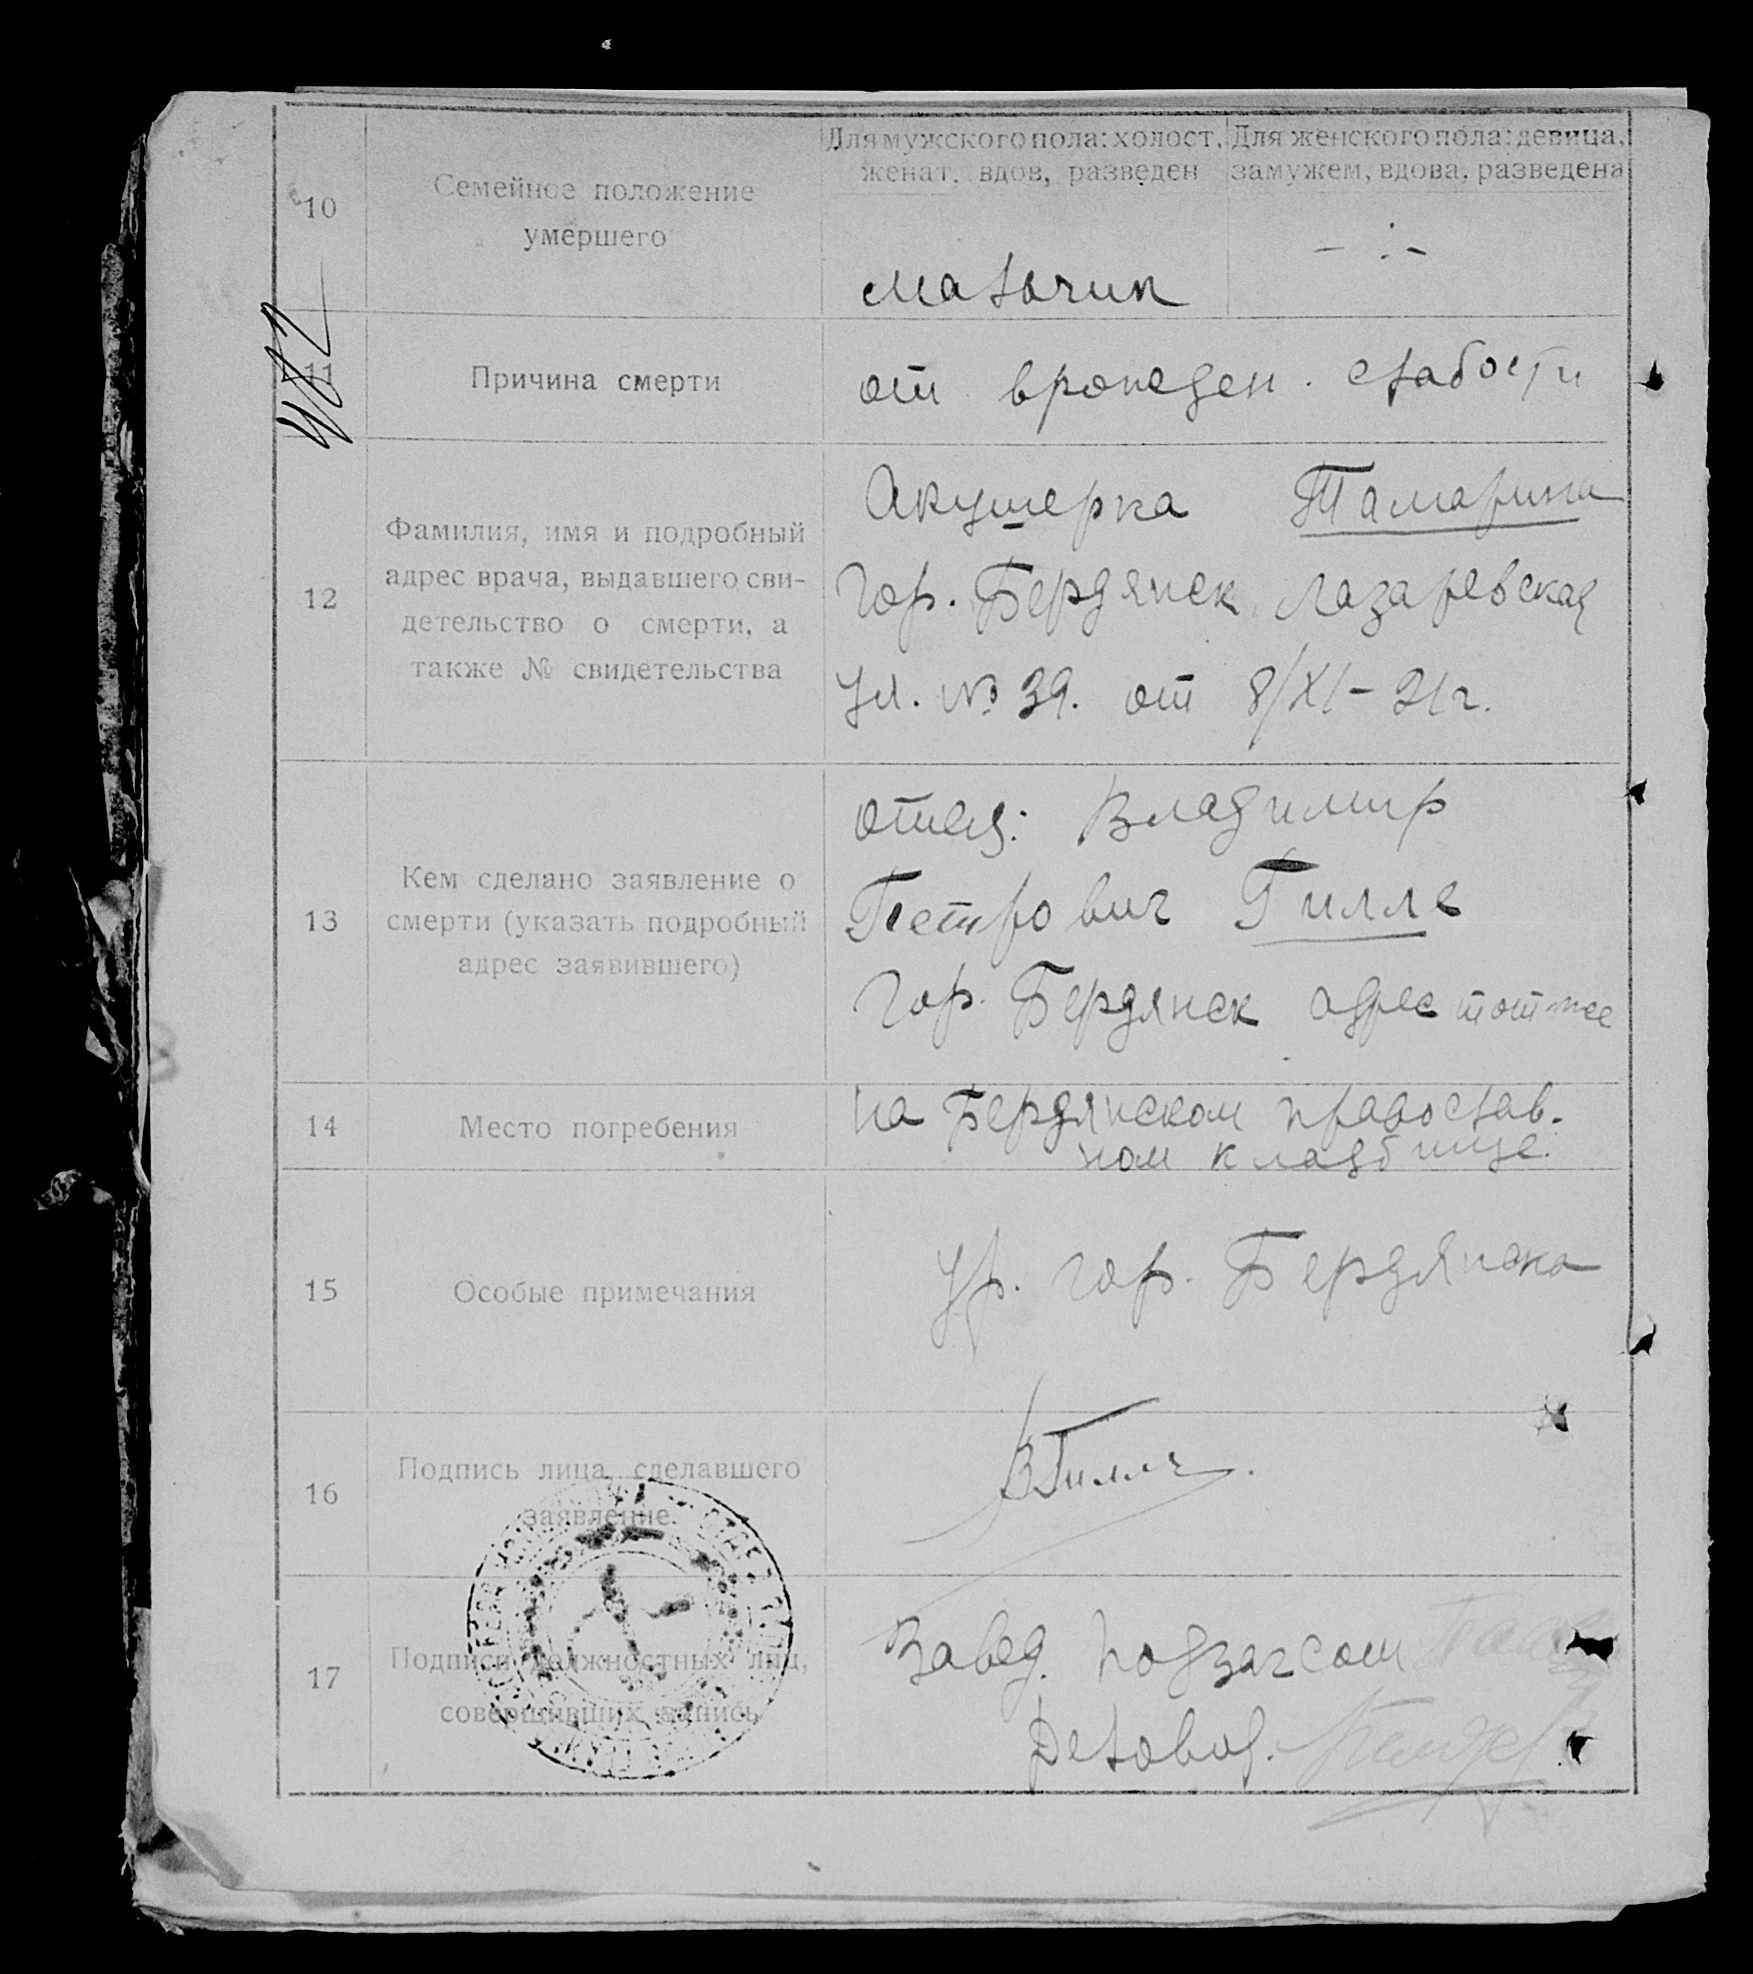 10
Семейное положение
умершего
Для мужского пола: холост,
женат, вдов, разведен
Для женского пола: девица,
замужем, вдова, разведена
мальчик
11
Причина смерти
от врожден. слабости
12
Фамилия, имя и подробный
адрес врача, выдавшего сви-
детельство о смерти, а
также № свидетельства
Акушерка Тамарина
Гор. Бердянск Лазаревская
ул. № 39. от 8/XI-21г.
13
Кем сделано заявление о
смерти (указать подробный
адрес заявившего)
отец: Владимир
Петрович Гилле
Гор. Бердянск адрес тот же
14
Место погребения
на Бердянском православ-
ном кладбище.
15
Особые примечания
Ур. гор. Бердянска
16
Подпись лица, сделавшего
заявление.
ВГилле.
17
Подписи должностных лиц,
совершивших запись
Завед. подзагсом
Деловод.